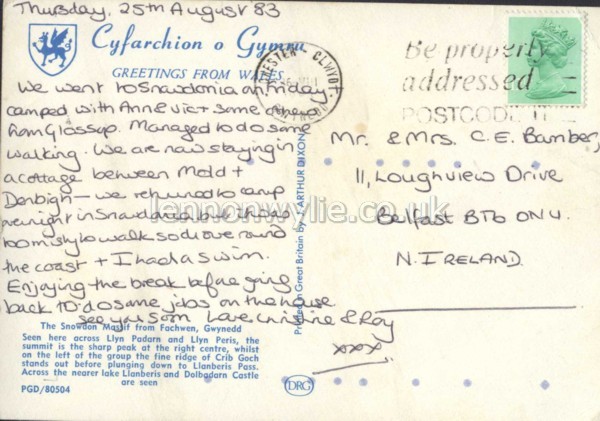 Thursday, 25th August 83
Cyfarchion o Gymru
GREETINGS FROM WALES
We went to Snowdonia on Friday,
camped with Ann & Vic + some
from Glossop. Managed to do some
walking. We are now staying in
a cottage between Mold +
Denbigh – we returned to camp
overnight in Snowdonia but
too misty to walk so drove round
the coast + I had a swim.
Enjoying the break before going
back to do some jobs on the house
see you soon Love Christine & Roy
xxx
The Snowdon Massif from Fachwen, Gwynedd
Seen here across Llyn Padarn and Llyn Peris, the
summit is the sharp peak at the right centre, whilst
on the left of the group the fine ridge of Crib Goch
stands out before plunging down to Llanberis Pass.
Across the nearer lake Llanberis and Dolbadarn Castle
are seen
PGD/80504
Printed in Great Britain by ARTHUR DIXON
DRG
CHESTER CLWYD
Be properly
addressed
POSTCODE IT
Mr. & Mrs. C. E. Bamber,
11, Loughview Drive
Belfast BT6 0NU.
N. IRELAND.
lennonwylie.co.uk